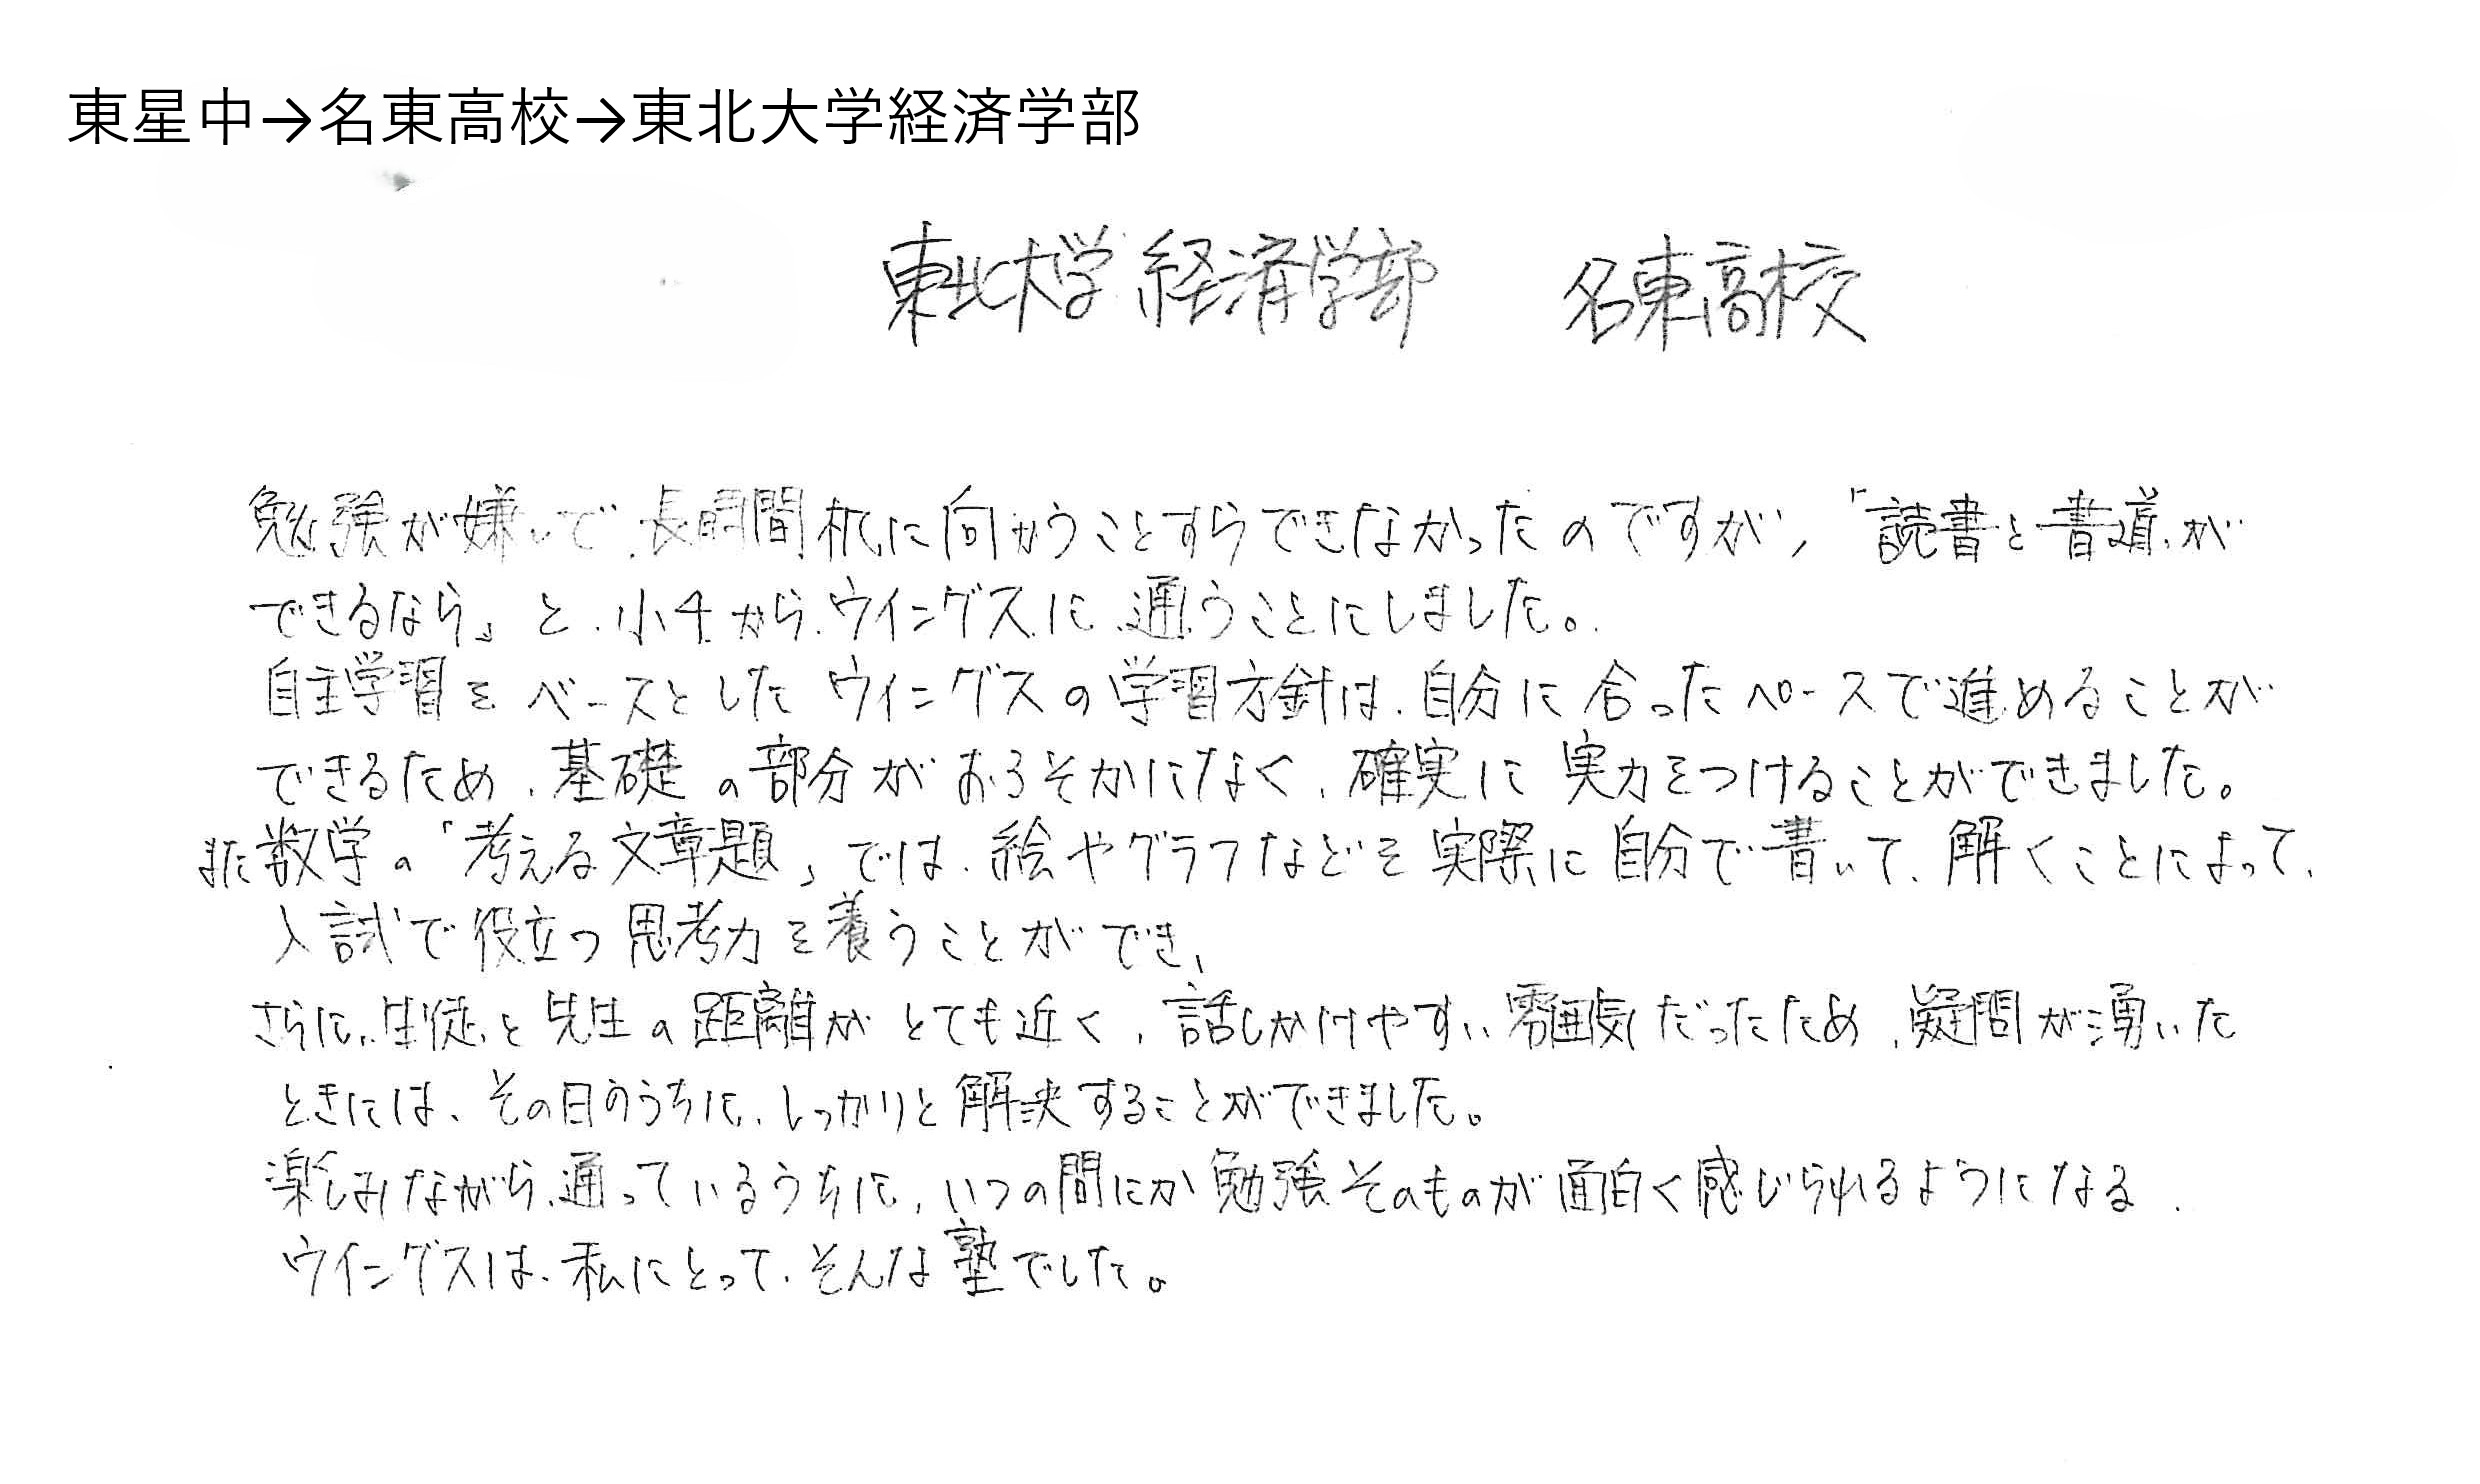 東星中→名東高校→東北大学経済学部
東北大学 経済学部　名東高校
勉強が嫌いで、長時間机に向かうことすらできなかったのですが、「読書と書道が
できるなら」と、小4から、ウイングスに通うことにしました。
自主学習をベースとしたウイングスの学習方針は、自分に合ったペースで進めることが
できるため、基礎の部分がおろそかになく、確実に実力をつけることができました。
また数学の「考える文章題」では、絵やグラフなどを実際に自分で書いて、解くことによって、
入試で役立つ思考力を養うことができ、
さらに、生徒と先生の距離がとても近く、話しかけやすい雰囲気だったため、疑問が湧いた
ときには、その日のうちに、しっかりと解決することができました。
楽しみながら、通っているうちに、いつの間にか勉強そのものが面白く感じられるようになる、
ウイングスは、私にとって、そんな塾でした。